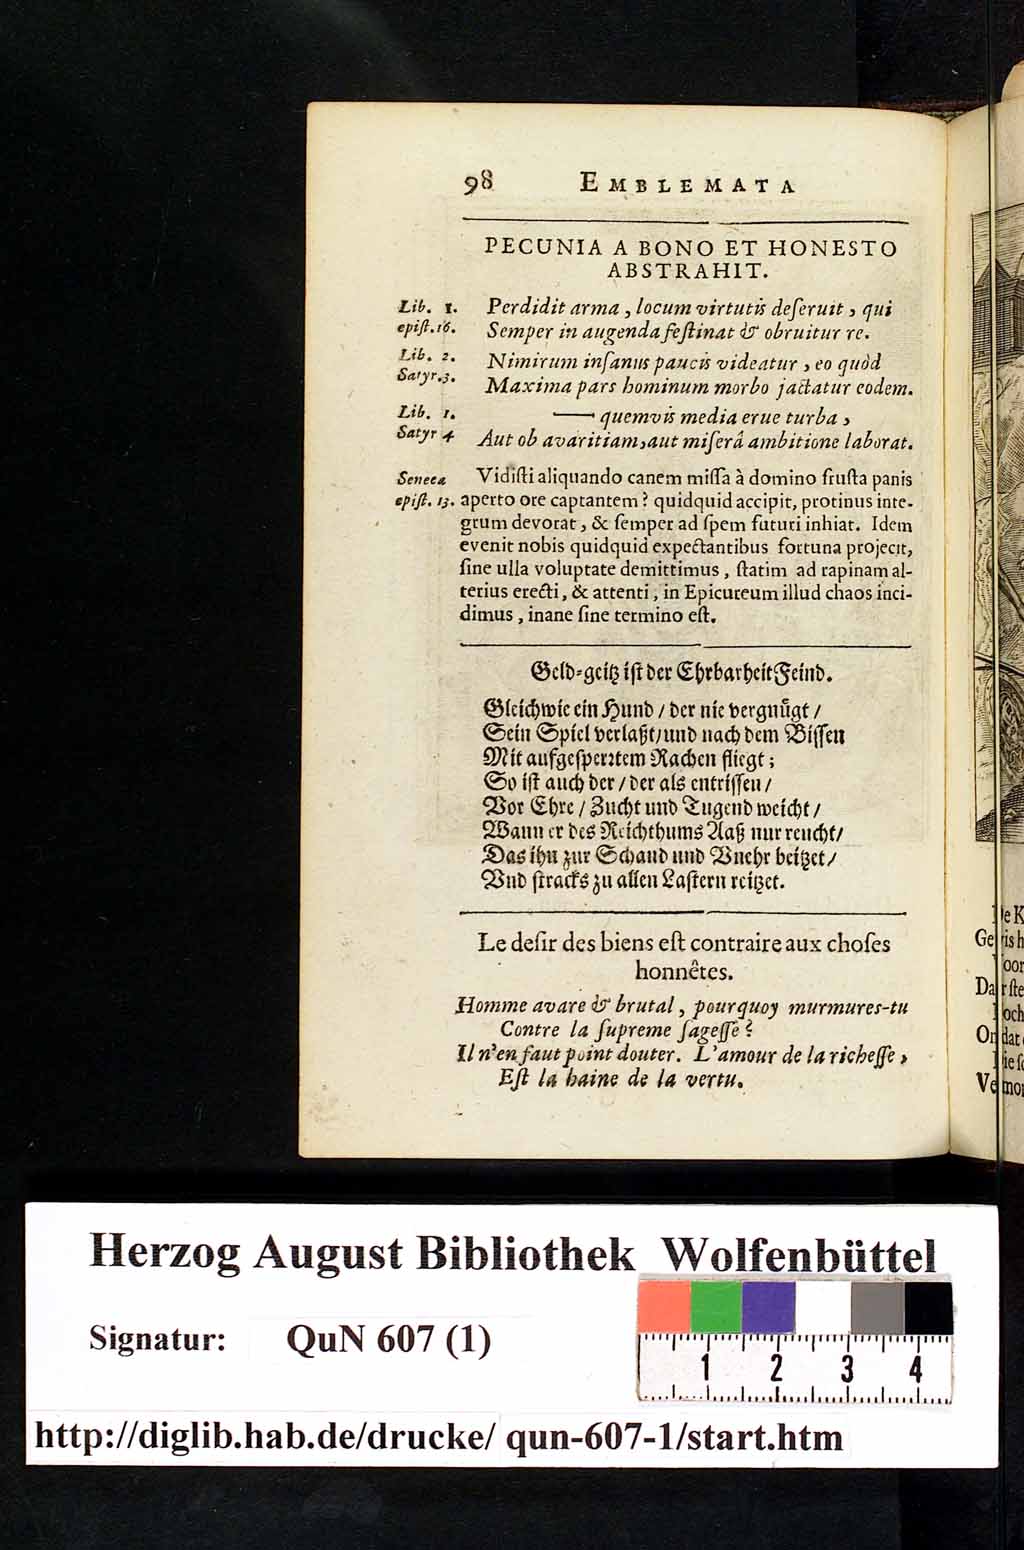 98 EMBLEMATA
PECUNIA A BONO ET HONESTO
ABSTRAHIT.
Lib. 1. Perdidit arma, locum virtutis deſeruit, qui
epiſt. 16. Semper in augenda feſtinat & obruitur re.
Lib. 2. Nimirum inſanus paucis videatur, eo quòd
Satyr. 3. Maxima pars hominum morbo jactatur eodem.
Lib. 1. —— quemvis media erue turba,
Satyr 4 Aut ob avaritiam, aut miſerâ ambitione laborat.
Seneca Vidiſti aliquando canem miſſa à domino fruſta panis
epiſt. 13. aperto ore captantem? quidquid accipit, protinus inte-
grum devorat, & ſemper ad ſpem futuri inhiat. Idem
evenit nobis quidquid expectantibus fortuna projecit,
ſine ulla voluptate demittimus, ſtatim ad rapinam al-
terius erecti, & attenti, in Epicureum illud chaos inci-
dimus, inane ſine termino eſt.
Geld-geitz iſt der Ehrbarheit Feind.
Gleichwie ein Hund / der nie vergnuͤgt /
Sein Spiel verlaßt / und nach dem Biſſen
Mit aufgeſperꝛtem Rachen fliegt;
So iſt auch der / der als entriſſen /
Vor Ehre / Zucht und Tugend weicht /
Wann er des Reichthums Aaß nur reucht /
Das ihn zur Schand und Vnehr beitzet /
Vnd ſtracks zu allen Laſtern reitzet.
Le deſir des biens eſt contraire aux choſes
honnêtes.
Homme avare & brutal, pourquoy murmures-tu
Contre la ſupreme ſageſſe?
Il n'en faut point douter. L'amour de la richeſſe,
Eſt la haine de la vertu.
Herzog August Bibliothek Wolfenbüttel
Signatur: QuN 607 (1)
1 2 3 4
http://diglib.hab.de/drucke/ qun-607-1/start.htm